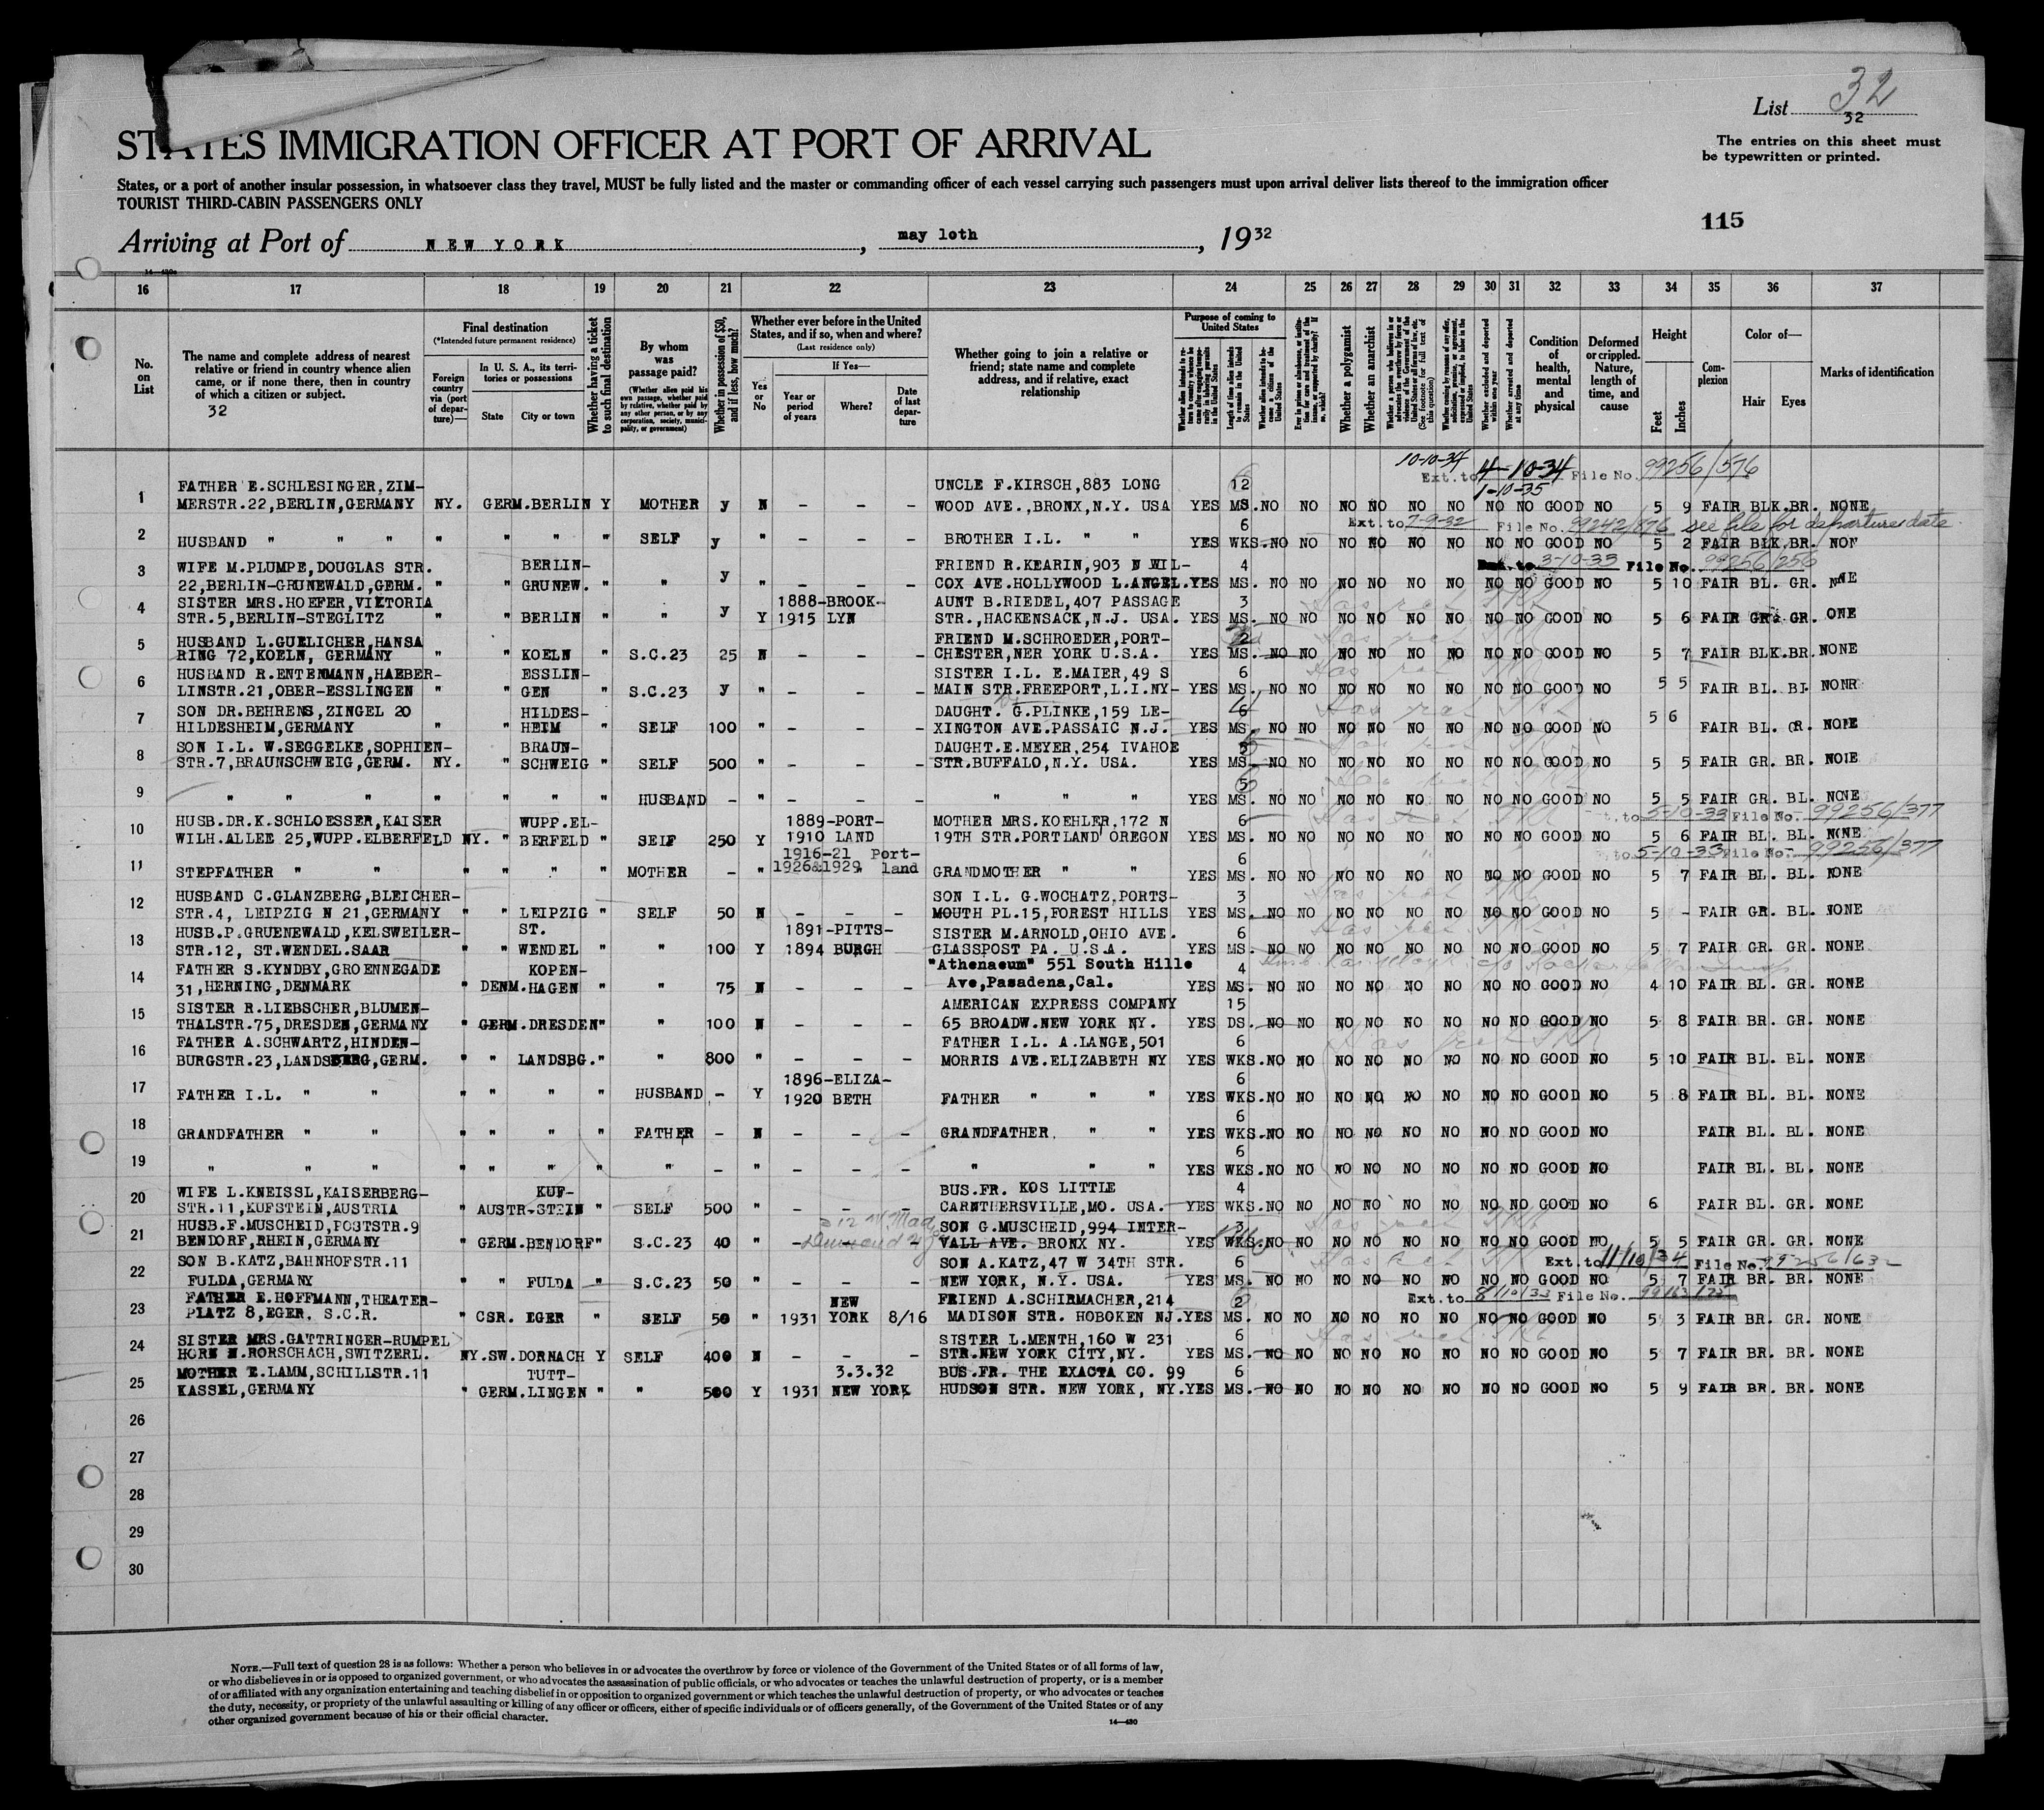 List 32
32
STATES IMMIGRATION OFFICER AT PORT OF ARRIVAL
The entries on this sheet must
be typewritten or printed.
States, or a port of another insular possession, in whatsoever class they travel, MUST be fully listed and the master or commanding officer of each vessel carrying such passengers must upon arrival deliver lists thereof to the immigration officer
TOURIST THIRD-CABIN PASSENGERS ONLY
115
Arriving at Port of NEW YORK, may 10th, 1932
16 17 18 19 20 21 22 23 24 25 26 27 28 29 30 31 32 33 34 35 36 37
No. on List
The name and complete address of nearest
relative or friend in country whence alien
came, or if none there, then in country
of which a citizen or subject.
32
Final destination
(*Intended future permanent residence)
Foreign country via (port of departure)—
In U. S. A., its territories or possessions
State City or town
Whether having a ticket to such final destination
By whom was passage paid?
(Whether alien paid his own passage, whether paid by relative, whether paid by any other person, or by any corporation, society, municipality, or government)
Whether in possession of $50, and if less, how much?
Whether ever before in the United States, and if so, when and where?
(Last residence only)
If Yes—
Yes or No
Year or period of years
Where?
Date of last departure
Whether going to join a relative or
friend; state name and complete
address, and if relative, exact
relationship
Purpose of coming to United States
Length of time alien intends to remain in the United States
Whether alien intends to become a citizen of the United States
Whether a polygamist
Whether an anarchist
Whether excluded and deported within one year
Whether arrested and deported at any time
Condition of health, mental and physical
Deformed or crippled. Nature, length of time, and cause
Height
Feet Inches
Complexion
Color of—
Hair Eyes
Marks of identification
10-10-34
Ext. to 4-10-34 File No. 99256/576
1-10-35
FATHER E.SCHLESINGER,ZIM- UNCLE F.KIRSCH,883 LONG 12
1 MERSTR.22,BERLIN,GERMANY NY. GERM.BERLIN Y MOTHER y N - - - WOOD AVE.,BRONX,N.Y. USA YES MS.NO NO NO NO NO NO NO NO GOOD NO 5 9 FAIR BLK.BR. NONE
6 Ext. to 7-9-32 File No. 99242/876 see file for departure date
2 HUSBAND " " " " " " " SELF y " - - - BROTHER I.L. " " YES WKS.NO NO NO NO NO NO NO NO GOOD NO 5 2 FAIR BLK.BR. NON
3 WIFE M.PLUMPE,DOUGLAS STR. BERLIN- FRIEND R.KEARIN,903 N WIL- 4 Ext. to 3-10-33 File No. 99256/256
22,BERLIN-GRUNEWALD,GERM. " " GRUNEW. " " y " - - - COX AVE.HOLLYWOOD L.ANGEL.YES MS. NO NO NO NO NO NO NO NO GOOD NO 5 10 FAIR BL. GR. NONE
4 SISTER MRS.HOEFER,VIKTORIA 1888-BROOK- AUNT B.RIEDEL,407 PASSAGE 3
STR.5,BERLIN-STEGLITZ " " BERLIN " " y Y 1915 LYN STR.,HACKENSACK,N.J. USA. YES MS. NO NO NO NO NO NO NO NO GOOD NO 5 6 FAIR GR. GR. ONE
5 HUSBAND L.GUELICHER,HANSA FRIEND M.SCHROEDER,PORT- 2
RING 72,KOELN, GERMANY " " KOELN " S.C.23 25 N - - - CHESTER,NER YORK U.S.A. YES MS. NO NO NO NO NO NO NO NO GOOD NO 5 7 FAIR BLK.BR.NONE
6 HUSBAND R.ENTENMANN,HAEBER- ESSLIN- SISTER I.L. E.MAIER,49 S 6
LINSTR.21,OBER-ESSLINGEN " " GEN " S.C.23 y " - - - MAIN STR.FREEPORT,L.I.NY- YES MS. NO NO NO NO NO NO NO NO GOOD NO 5 5 FAIR BL. BL. NONR
7 SON DR.BEHRENS,ZINGEL 20 HILDES- DAUGHT. G.PLINKE,159 LE- 6
HILDESHEIM,GERMANY " " HEIM " SELF 100 " - - - XINGTON AVE.PASSAIC N.J. YES MS. NO NO NO NO NO NO NO NO GOOD NO 5 6 FAIR BL. GR. NONE
8 SON I.L. W.SEGGELKE,SOPHIEN- BRAUN- DAUGHT.E.MEYER,254 IVAHOE
STR.7,BRAUNSCHWEIG,GERM. NY. " SCHWEIG " SELF 500 " - - - STR.BUFFALO,N.Y. USA. YES MS. NO NO NO NO NO NO NO NO GOOD NO 5 5 FAIR GR. BR. NONE
5
9 " " " " " " " HUSBAND - " - - - " " " YES MS. NO NO NO NO NO NO NO NO GOOD NO 5 5 FAIR GR. BL. NONE
10 HUSB.DR.K.SCHLOESSER,KAISER WUPP.EL- 1889-PORT- MOTHER MRS.KOEHLER,172 N 6 to 5-10-33 File No. 99256/377
WILH.ALLEE 25,WUPP.ELBERFELD NY. " BERFELD " SELF 250 Y 1910 LAND 19TH STR.PORTLAND OREGON YES MS. NO NO NO NO NO NO NO NO GOOD NO 5 6 FAIR BL. BL. NONE
1916-21 Port- 6 to 5-10-33 File No. 99256/377
11 STEPFATHER " " " " " " MOTHER - " 1926&1929 land GRANDMOTHER " " YES MS. NO NO NO NO NO NO NO NO GOOD NO 5 7 FAIR BL. BL. NONE
12 HUSBAND C.GLANZBERG,BLEICHER- SON I.L. G.WOCHATZ,PORTS- 3
STR.4, LEIPZIG N 21,GERMANY " " LEIPZIG " SELF 50 N - - - MOUTH PL.15,FOREST HILLS YES MS. NO NO NO NO NO NO NO NO GOOD NO 5 - FAIR GR. BL. NONE
13 HUSB.P.GRUENEWALD,KELSWEILER- ST. 1891-PITTS- SISTER M.ARNOLD,OHIO AVE. 6
STR.12, ST.WENDEL.SAAR " " WENDEL " " 100 Y 1894 BURGH GLASSPOST PA. U.S.A. YES MS. NO NO NO NO NO NO NO NO GOOD NO 5 7 FAIR GR. GR. NONE
14 FATHER S.KYNDBY,GROENNEGADE KOPEN- "Athenaeum" 551 South Hille 4
31,HERNING,DENMARK " DENM.HAGEN " " 75 N - - - Ave,Pasadena,Cal. YES MS. NO NO NO NO NO NO NO NO GOOD NO 4 10 FAIR BL. GR. NONE
15 SISTER R.LIEBSCHER,BLUMEN- AMERICAN EXPRESS COMPANY 15
THALSTR.75,DRESDEN,GERMANY " GERM.DRESDEN" " 100 N - - - 65 BROADW.NEW YORK NY. YES DS. NO NO NO NO NO NO NO NO GOOD NO 5 8 FAIR BR. GR. NONE
16 FATHER A.SCHWARTZ,HINDEN- FATHER I.L. A.LANGE,501 6
BURGSTR.23,LANDSBERG,GERM. " " LANDSBG." " 800 " - - - MORRIS AVE.ELIZABETH NY YES WKS.NO NO NO NO NO NO NO NO GOOD NO 5 10 FAIR BL. BL. NONE
1896-ELIZA- 6
17 FATHER I.L. " " " " " " HUSBAND - Y 1920 BETH FATHER " " " YES WKS.NO NO NO NO NO NO NO NO GOOD NO 5 8 FAIR BL. BL. NONE
6
18 GRANDFATHER " " " " " " FATHER - N - - - GRANDFATHER " " YES WKS.NO NO NO NO NO NO NO NO GOOD NO FAIR BL. BL. NONE
6
19 " " " " " " " " - " - - - " " " YES WKS.NO NO NO NO NO NO NO NO GOOD NO FAIR BL. BL. NONE
20 WIFE L.KNEISSL,KAISERBERG- KUF- BUS.FR. KOS LITTLE 4
STR.11,KUFSTEIN,AUSTRIA " AUSTR-STEIN " SELF 500 " - - - CARNTHERSVILLE,MO. USA. YES WKS.NO NO NO NO NO NO NO NO GOOD NO 6 FAIR BL. GR. NONE
21 HUSB.F.MUSCHEID,POSTSTR.9 SON G.MUSCHEID,994 INTER- 3
BENDORF,RHEIN,GERMANY " GERM.BENDORF" S.C.23 40 " - - - VALL AVE. BRONX NY. YES WKS.NO NO NO NO NO NO NO NO GOOD NO 5 5 FAIR GR. GR. NONE
22 SON B.KATZ,BAHNHOFSTR.11 SON A.KATZ,47 W 34TH STR. 6 Ext. to 11/10/34 File No. 99256/632
FULDA,GERMANY " " FULDA " S.C.23 50 " - - - NEW YORK, N.Y. USA. YES MS. NO NO NO NO NO NO NO NO GOOD NO 5 7 FAIR BR. BR. NONE
23 FATHER E.HOFFMANN,THEATER- NEW FRIEND A.SCHIRMACHER,214 2 Ext. to 8/10/33 File No.
PLATZ 8,EGER. S.C.R. " CSR. EGER " SELF 50 " 1931 YORK 8/16 MADISON STR. HOBOKEN NJ.YES MS. NO NO NO NO NO NO NO NO GOOD NO 5 3 FAIR BR. GR. NONE
24 SISTER MRS.GATTRINGER-RUMPEL SISTER L.MENTH,160 W 231 6
HORN N.RORSCHACH,SWITZERL. NY.SW.DORNACH Y SELF 400 N - - - STR.NEW YORK CITY,NY. YES MS. NO NO NO NO NO NO NO NO GOOD NO 5 7 FAIR BR. BR. NONE
25 MOTHER E.LAMM,SCHILLSTR.11 TUTT- 3.3.32 BUS.FR. THE EXACTA CO. 99 6
KASSEL,GERMANY " GERM.LINGEN " " 500 Y 1931 NEW YORK HUDSON STR. NEW YORK, NY.YES MS. NO NO NO NO NO NO NO NO GOOD NO 5 9 FAIR BR. BR. NONE
26
27
28
29
30
NOTE.—Full text of question 28 is as follows: Whether a person who believes in or advocates the overthrow by force or violence of the Government of the United States or of all forms of law,
or who disbelieves in or is opposed to organized government, or who advocates the assassination of public officials, or who advocates or teaches the unlawful destruction of property, or is a member
of or affiliated with any organization entertaining and teaching disbelief in or opposition to organized government or which teaches the unlawful destruction of property, or who advocates or teaches
the duty, necessity, or propriety of the unlawful assaulting or killing of any officer or officers, either of specific individuals or of officers generally, of the Government of the United States or of any
other organized government because of his or their official character.
14—430